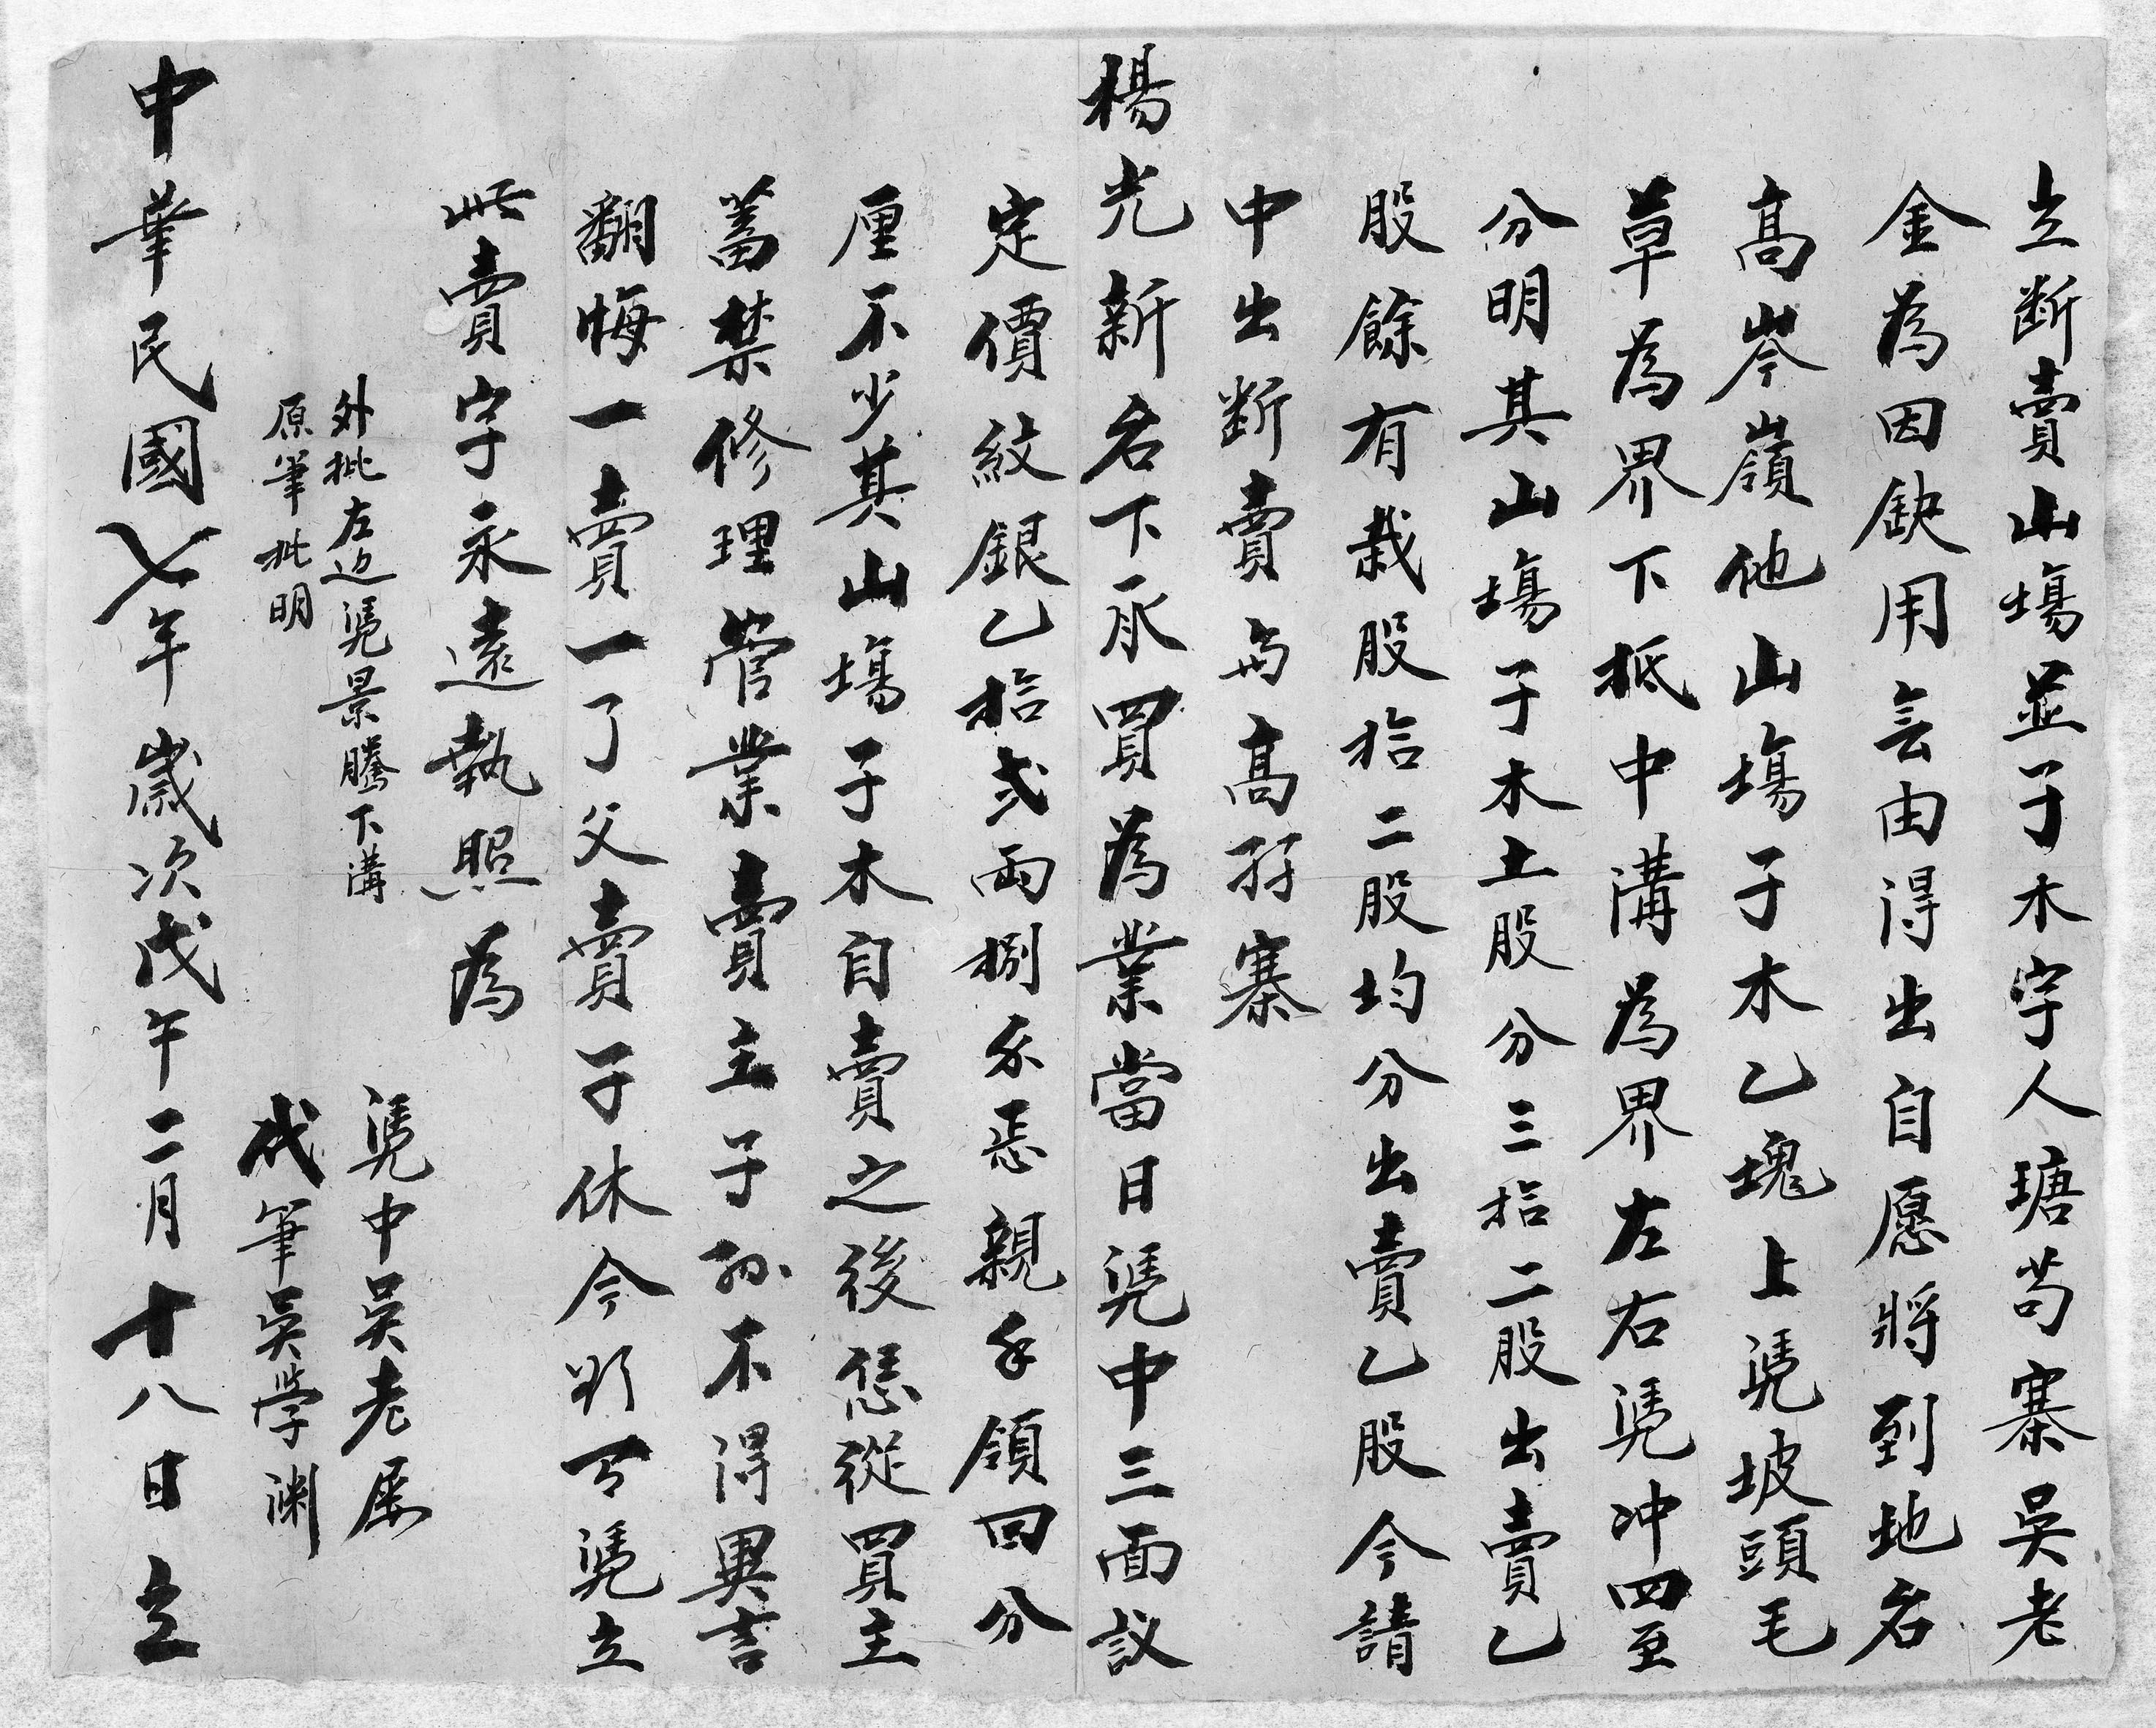 立断賣山塲並子木字人瑭苟寨吳老
金為因缺用無由得出自愿將到地名
高岑嶺他山塲子木乙塊上凴坡頭毛
草為界下抵中溝為界左右凴冲四至
分明其山塲子木土股分三拾二股出賣乙
股餘有栽股拾二股均分出賣乙股今請
中出断賣與高孖寨
楊光新名下承買為業當日凴中三面議
定價紋銀乙拾弍兩捌 親手領回分
厘不少其山塲子木自賣之後恁從買主
蓄禁修理管業賣主子孫不得異言
翻悔一賣一了父賣子休今 凴立
此賣字永遠執照為
外批左边凴景騰下溝
原筆批明
凴中吳老屋
代筆吳学渊
中華民國七年歲次戊午二月十八日立